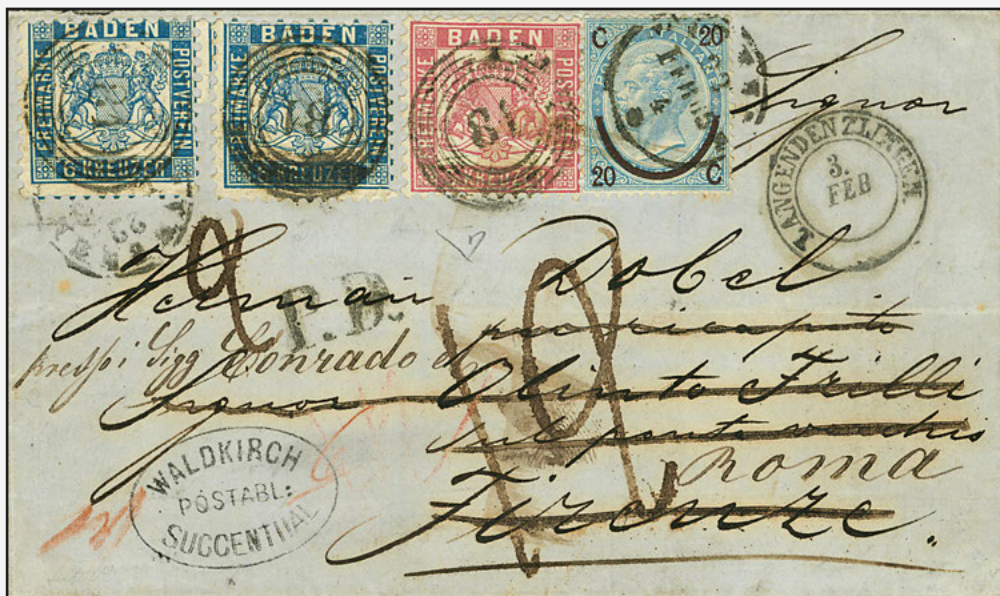 BADEN
FREIMARKE
POSTVEREIN
6 KREUZER
BADEN
FREIMARKE
POSTVEREIN
KREUZER
BADEN
FREIMARKE
POSTVEREIN
KREUZER
C 20
20 C
Signor
LANGENDENZLINGEN
3.
FEB
Herman Dobel
P.D.
presso i Sigg Conrado
Signor Olinto Frilli
sul ponte vecchio
Roma
Firenze.
WALDKIRCH
POSTABL:
SUCCENTHAL